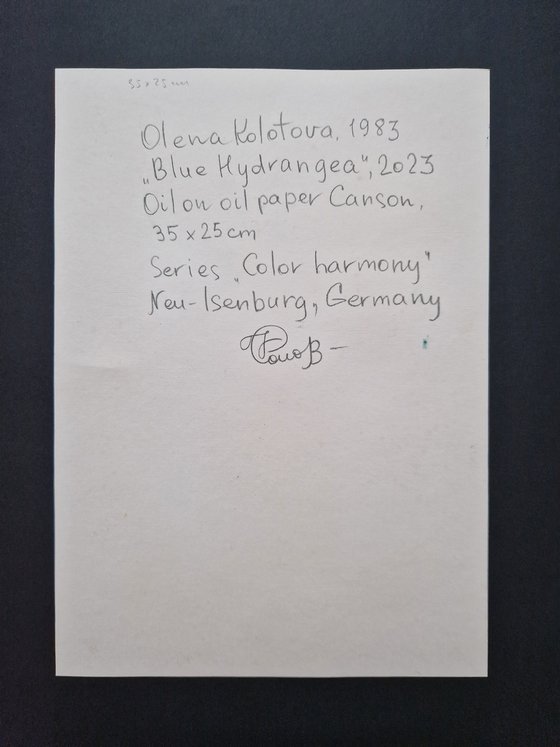 Olena Kolotova, 1983
„Blue Hydrangea“, 2023
Oil on oil paper Canson,
35 x 25 cm
Series „Color harmony“
Neu-Isenburg, Germany